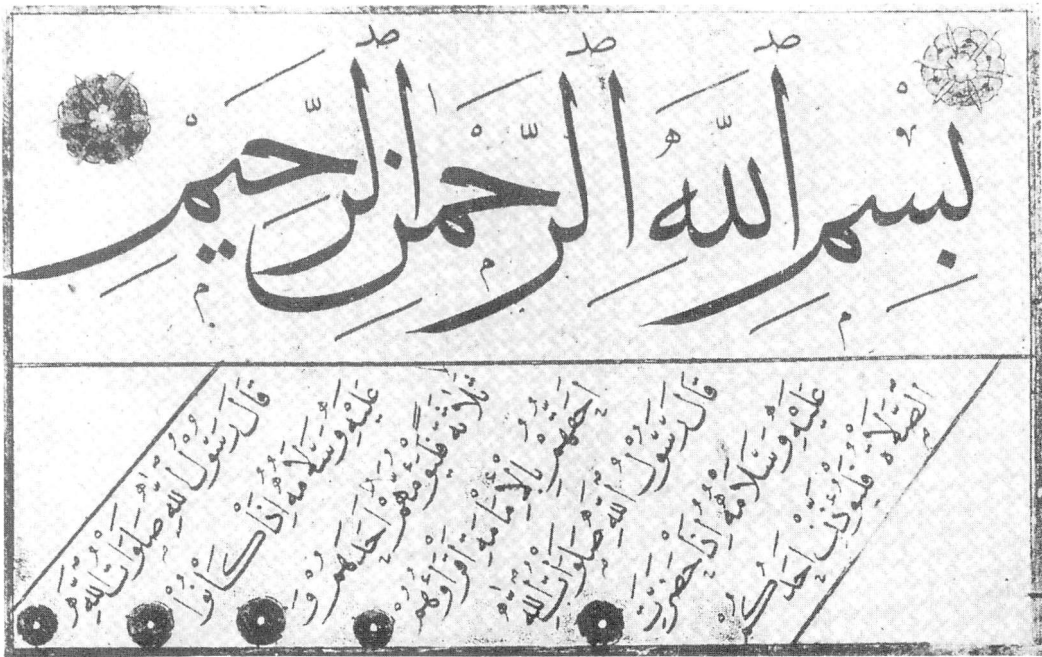 بِسْمِ ٱللَّهِ ٱلرَّحْمٰنِ ٱلرَّحِيمِ
قَالَ رَسُولُ اللهِ صَلَوَاتُ اللهِ
عَلَيْهِ وَسَلَامُهُ اِذَا كَانُوا
ثَلَاثَةً فَلْيَؤُمَّهُمْ اَحَدُهُمْ وَ
اَحَقُّهُمْ بِالْاِمَامَةِ اَقْرَؤُهُمْ
قَالَ رَسُولُ اللهِ صَلَوَاتُ اللهِ
عَلَيْهِ وَسَلَامُهُ اِذَا حَضَرَتِ
الصَّلَاةُ فَلْيُؤَذِّنْ اَحَدُكُمْ